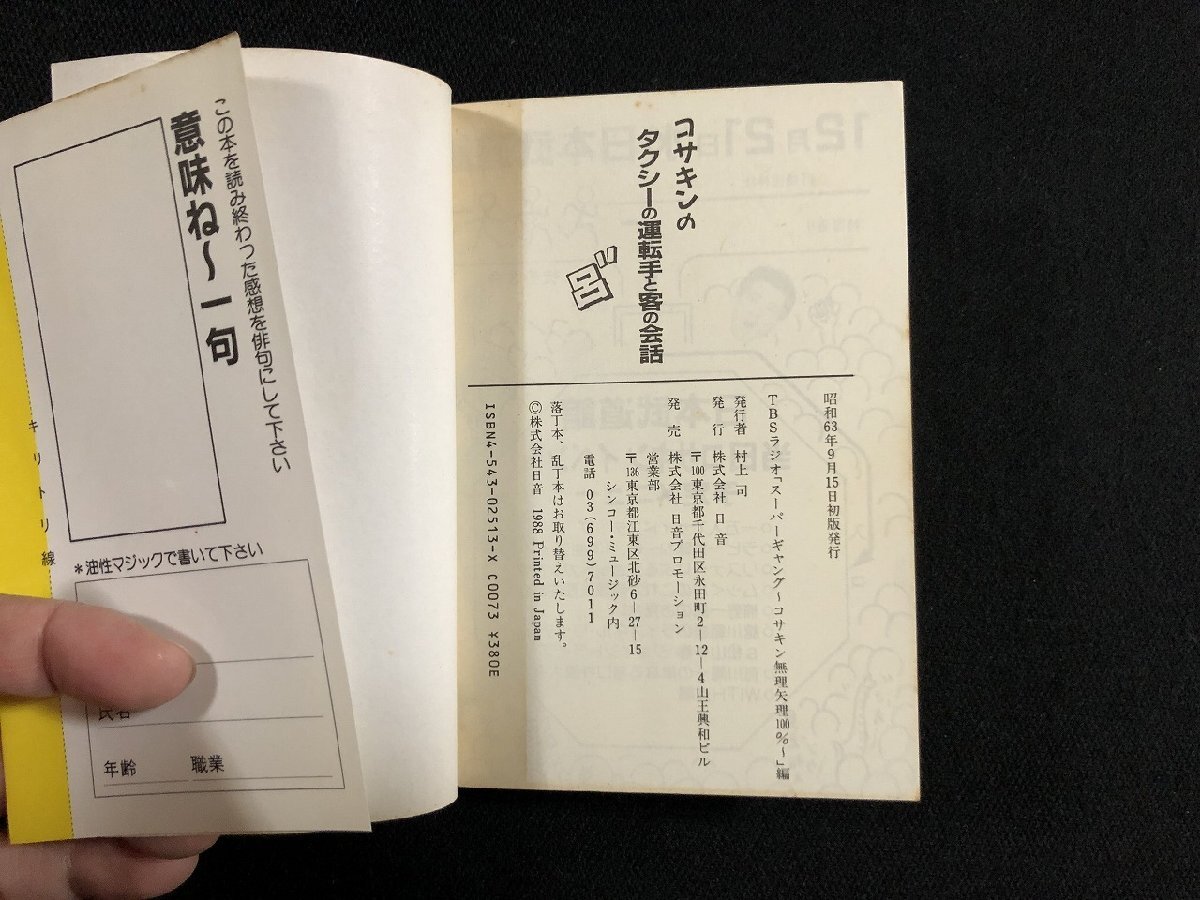 コサキンの
タクシーの運転手と客の会話
昭和63年9月15日初版発行
TBSラジオ「スーパーギャング〜コサキン無理矢理100%〜」編
発行者 村上 司
発 行 株式会社 日 音
〒100東京都千代田区永田町2―12―4山王興和ビル
発 売 株式会社 日音プロモーション
営業部
〒136東京都江東区北砂6―27―15
シンコー・ミュージック内
電話 03(699)7011
落丁本、乱丁本はお取り替えいたします。
©株式会社日音 1988 Printed in Japan
ISBN4-543-02513-X C0073 ¥380E
この本を読み終わった感想を俳句にして下さい
意味ね〜一句
キリトリ線
*油性マジックで書いて下さい
氏名
年齢 職業
12月21日